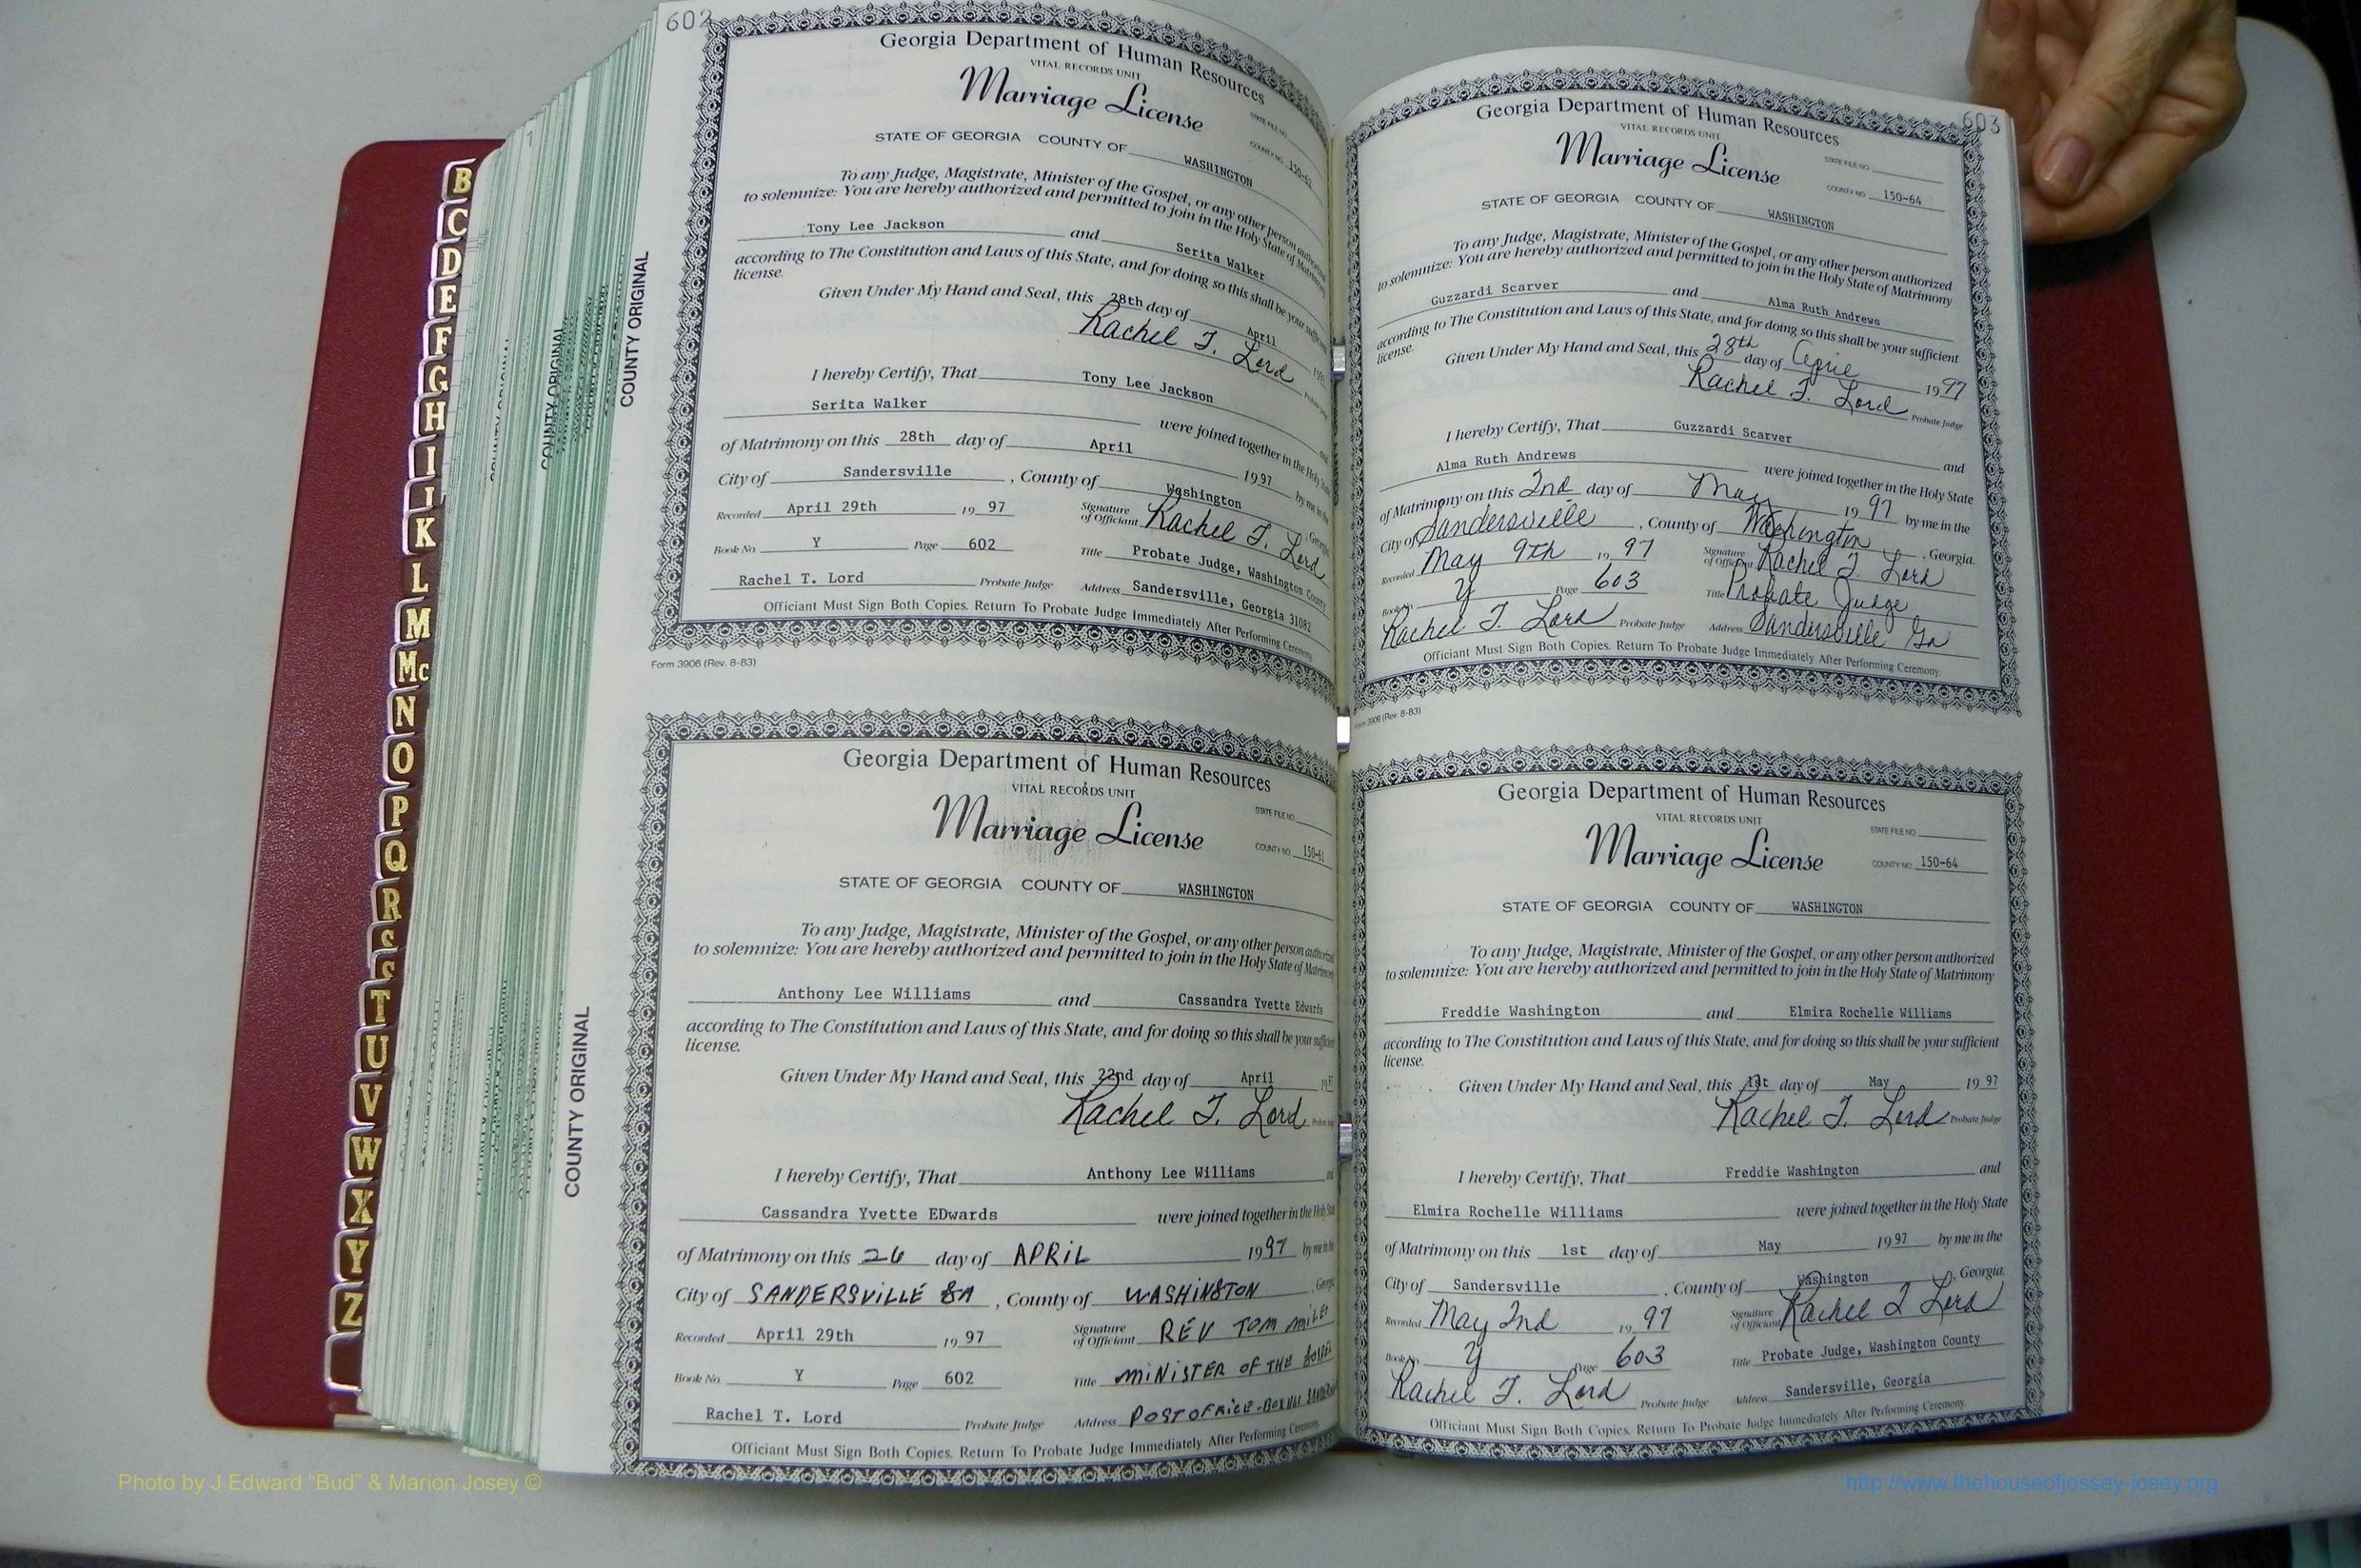 602
Georgia Department of Human Resources
VITAL RECORDS UNIT
Marriage License
STATE FILE NO.
COUNTY NO.
STATE OF GEORGIA COUNTY OF WASHINGTON
To any Judge, Magistrate, Minister of the Gospel, or any other person authorized
to solemnize: You are hereby authorized and permitted to join in the Holy State of Matrimony
Tony Lee Jackson and Serita Walker
according to The Constitution and Laws of this State, and for doing so this shall be your sufficient
license.
Given Under My Hand and Seal, this 28th day of April
Rachel T. Lord
I hereby Certify, That Tony Lee Jackson
Serita Walker were joined together in the Holy
of Matrimony on this 28th day of April 1997 by me in the
City of Sandersville, County of Washington
Recorded April 29th 1997 Signature of Officiant Rachel T. Lord
Book No Y Page 602 Title Probate Judge, Washington County
Rachel T. Lord Probate Judge Address Sandersville, Georgia 31082
Officiant Must Sign Both Copies. Return To Probate Judge Immediately After Performing Ceremony.
Form 3906 (Rev. 8-83)
COUNTY ORIGINAL
Georgia Department of Human Resources
VITAL RECORDS UNIT
Marriage License
STATE FILE NO.
COUNTY NO.
STATE OF GEORGIA COUNTY OF WASHINGTON
To any Judge, Magistrate, Minister of the Gospel, or any other person authorized
to solemnize: You are hereby authorized and permitted to join in the Holy State of Matrimony
Anthony Lee Williams and Cassandra Yvette Edwards
according to The Constitution and Laws of this State, and for doing so this shall be your sufficient
license.
Given Under My Hand and Seal, this 22nd day of April
Rachel T. Lord
I hereby Certify, That Anthony Lee Williams
Cassandra Yvette EDwards were joined together in the Holy
of Matrimony on this 26 day of APRIL 1997 by me in the
City of SANDERSVILLE GA, County of WASHINGTON
Recorded April 29th 1997 Signature of Officiant REV TOM
Book No Y Page 602 Title MINISTER OF THE
Rachel T. Lord Probate Judge Address
Officiant Must Sign Both Copies. Return To Probate Judge Immediately After Performing Ceremony.
COUNTY ORIGINAL
603
Georgia Department of Human Resources
VITAL RECORDS UNIT
Marriage License
STATE FILE NO.
COUNTY NO. 150-64
STATE OF GEORGIA COUNTY OF WASHINGTON
To any Judge, Magistrate, Minister of the Gospel, or any other person authorized
to solemnize: You are hereby authorized and permitted to join in the Holy State of Matrimony
Guzzardi Scarver and Alma Ruth Andrews
according to The Constitution and Laws of this State, and for doing so this shall be your sufficient
license.
Given Under My Hand and Seal, this 28th day of April 1997
Rachel T. Lord Probate Judge
I hereby Certify, That Guzzardi Scarver and
Alma Ruth Andrews were joined together in the Holy State
of Matrimony on this 2nd day of May 1997 by me in the
City of Sandersville, County of Washington, Georgia.
Recorded May 9th 1997 Signature of Officiant Rachel T. Lord
Book No Y Page 603 Title Probate Judge
Rachel T. Lord Probate Judge Address Sandersville Ga
Officiant Must Sign Both Copies. Return To Probate Judge Immediately After Performing Ceremony.
Form 3906 (Rev. 8-83)
Georgia Department of Human Resources
VITAL RECORDS UNIT
Marriage License
STATE FILE NO.
COUNTY NO. 150-64
STATE OF GEORGIA COUNTY OF WASHINGTON
To any Judge, Magistrate, Minister of the Gospel, or any other person authorized
to solemnize: You are hereby authorized and permitted to join in the Holy State of Matrimony
Freddie Washington and Elmira Rochelle Williams
according to The Constitution and Laws of this State, and for doing so this shall be your sufficient
license.
Given Under My Hand and Seal, this 1st day of May 1997
Rachel T. Lord Probate Judge
I hereby Certify, That Freddie Washington and
Elmira Rochelle Williams were joined together in the Holy State
of Matrimony on this 1st day of May 1997 by me in the
City of Sandersville, County of Washington, Georgia.
Recorded May 2nd 1997 Signature of Officiant Rachel T Lord
Book No Y Page 603 Title Probate Judge, Washington County
Rachel T. Lord Probate Judge Address Sandersville, Georgia
Officiant Must Sign Both Copies. Return To Probate Judge Immediately After Performing Ceremony.
B
C
D
E
F
G
H
I
K
L
M
Mc
N
O
P
Q
R
S
T
U
V
W
X
Y
Z
Photo by J Edward “Bud” & Marion Josey ©
http://www.thehouseofjossey-josey.org